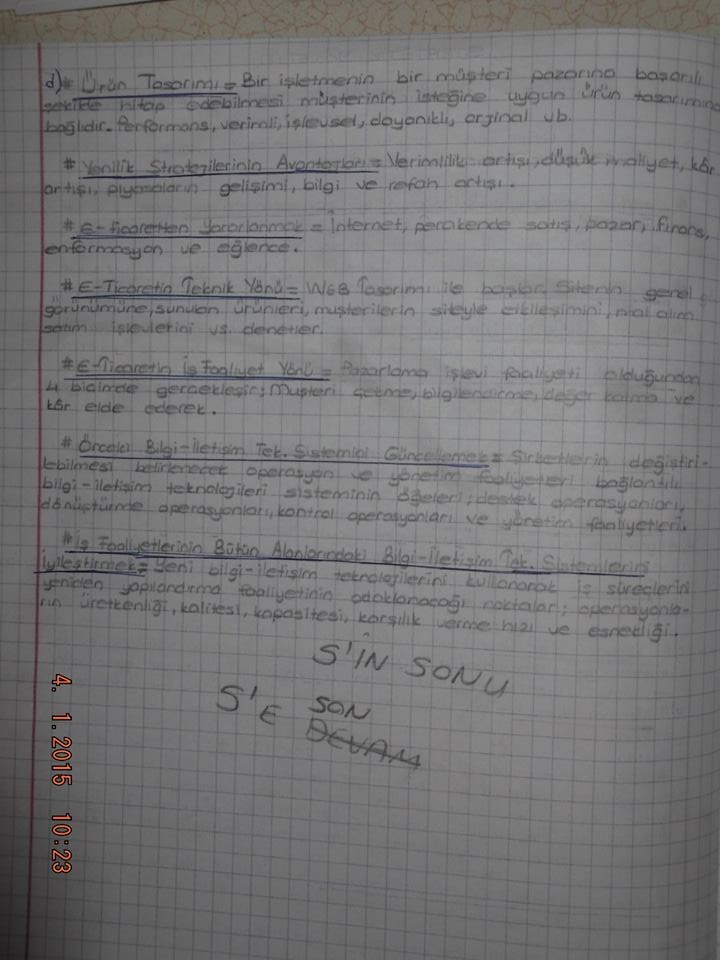 d)# Ürün Tasarımı = Bir işletmenin bir müşteri pazarına başarılı
şekilde hitap edebilmesi müşterinin isteğine uygun ürün tasarımına
bağlıdır. Performans, verimli, işlevsel, dayanıklı, orjinal vb.
# Yenilik Stratejilerinin Avantajları = Verimlilik artışı, düşük maliyet, kâr
artışı, piyasaların gelişimi, bilgi ve refah artışı.
# E-ticaretten Yararlanmak = İnternet, perakende satış, pazar, finans,
enformasyon ve eğlence.
# E-Ticaretin Teknik Yönü = WEB Tasarımı ile başlar. Sitenin genel
görünümüne, sunulan ürünleri, müşterilerin siteyle etkileşimini, mal alım
satım işlevlerini vs. denetler.
# E-Ticaretin İş Faaliyet Yönü = Pazarlama işlevi faaliyeti olduğundan
4 biçimde gerçekleşir; Müşteri çekme, bilgilendirme, değer katma ve
kâr elde ederek.
# Önceki Bilgi-İletişim Tek. Sistemini Güncellemek = Şirketlerin değiştiri-
lebilmesi belirlenecek operasyon ve yönetim faaliyetleri bağlantılı
bilgi-iletişim teknolojileri sisteminin öğeleri; destek operasyonları,
dönüştürme operasyonları, kontrol operasyonları ve yönetim faaliyetleri.
# İş Faaliyetlerinin Bütün Alanlarındaki Bilgi-İletişim Tek. Sistemlerini
İyileştirmek = Yeni bilgi-iletişim teknolojilerini kullanarak iş süreçlerini
yeniden yapılandırma faaliyetinin odaklanacağı noktalar; operasyonla-
rın üretkenliği, kalitesi, kapasitesi, karşılık verme hızı ve esnekliği.
S'İN SONU
S'E SON
DEVAM
4. 1.2015 10:23